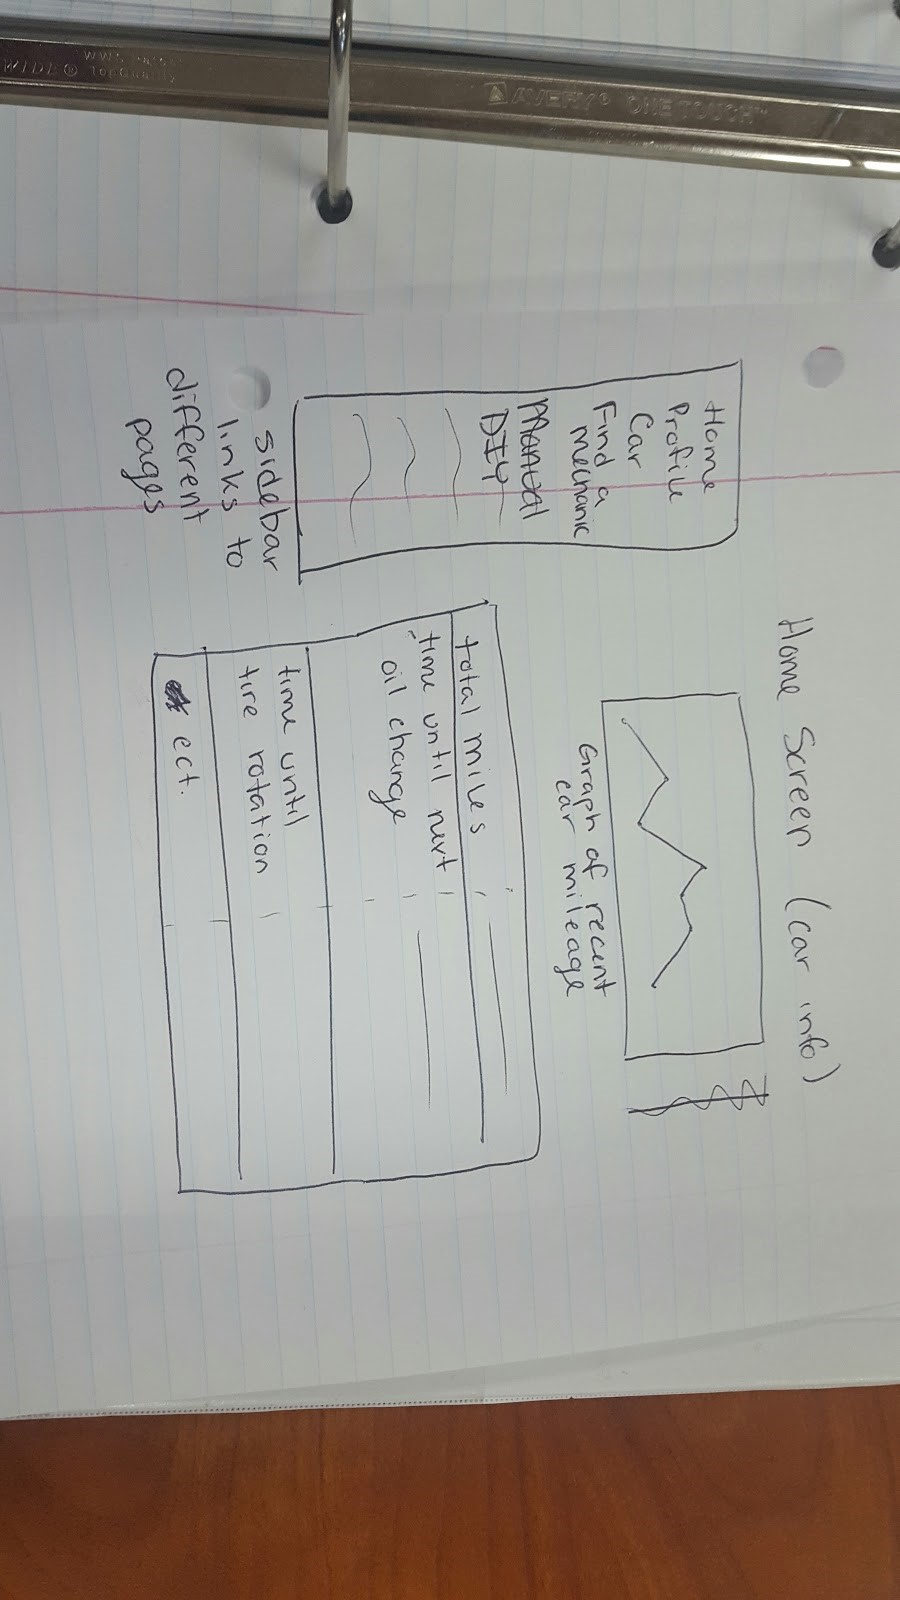 Home Screen (car info)
Home
Profile
Car
Find a
mechanic
Manual
DIY
sidebar
links to
different
pages
Graph of recent
car mileage
total miles
time until next
oil change
time until
tire rotation
ect.
AVERY ONE TOUCH